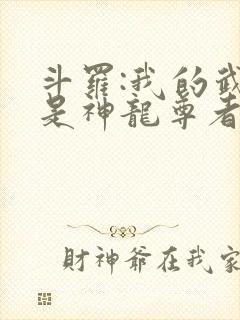 斗羅:我的武
是神龍尊者
財神爺在我家